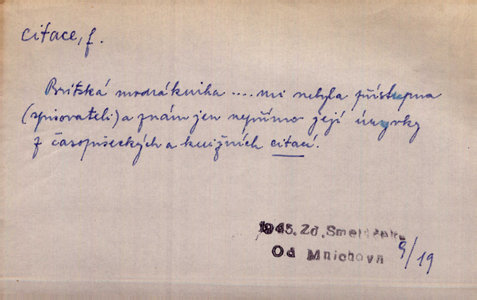 citace, f.
Britská modrá kniha .... mi nebyla přístupna
(spisovateli) a znám jen nepřímo její úryvky
z časopiseckých a knižních citací.
1945. Zd. Smetáček
Od Mnichova 9/19